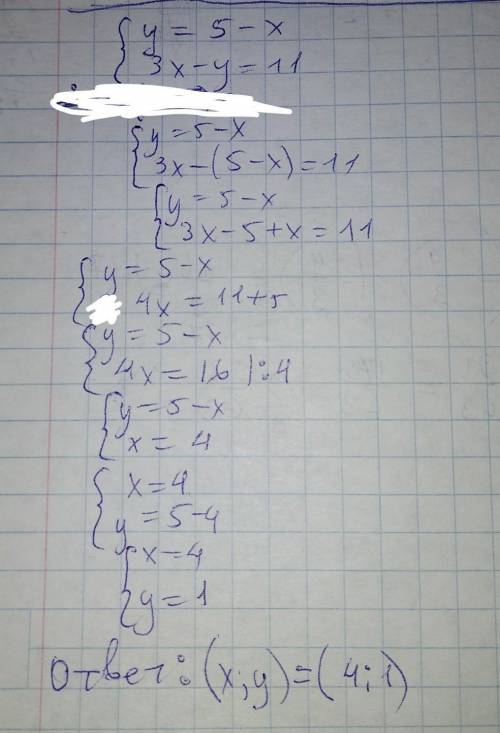 y = 5 - x
3x - y = 11
y = 5 - x
3x - (5 - x) = 11
y = 5 - x
3x - 5 + x = 11
y = 5 - x
4x = 11 + 5
y = 5 - x
4x = 16 | : 4
y = 5 - x
x = 4
x = 4
y = 5 - 4
x = 4
y = 1
Ответ: (x; y) = (4; 1)